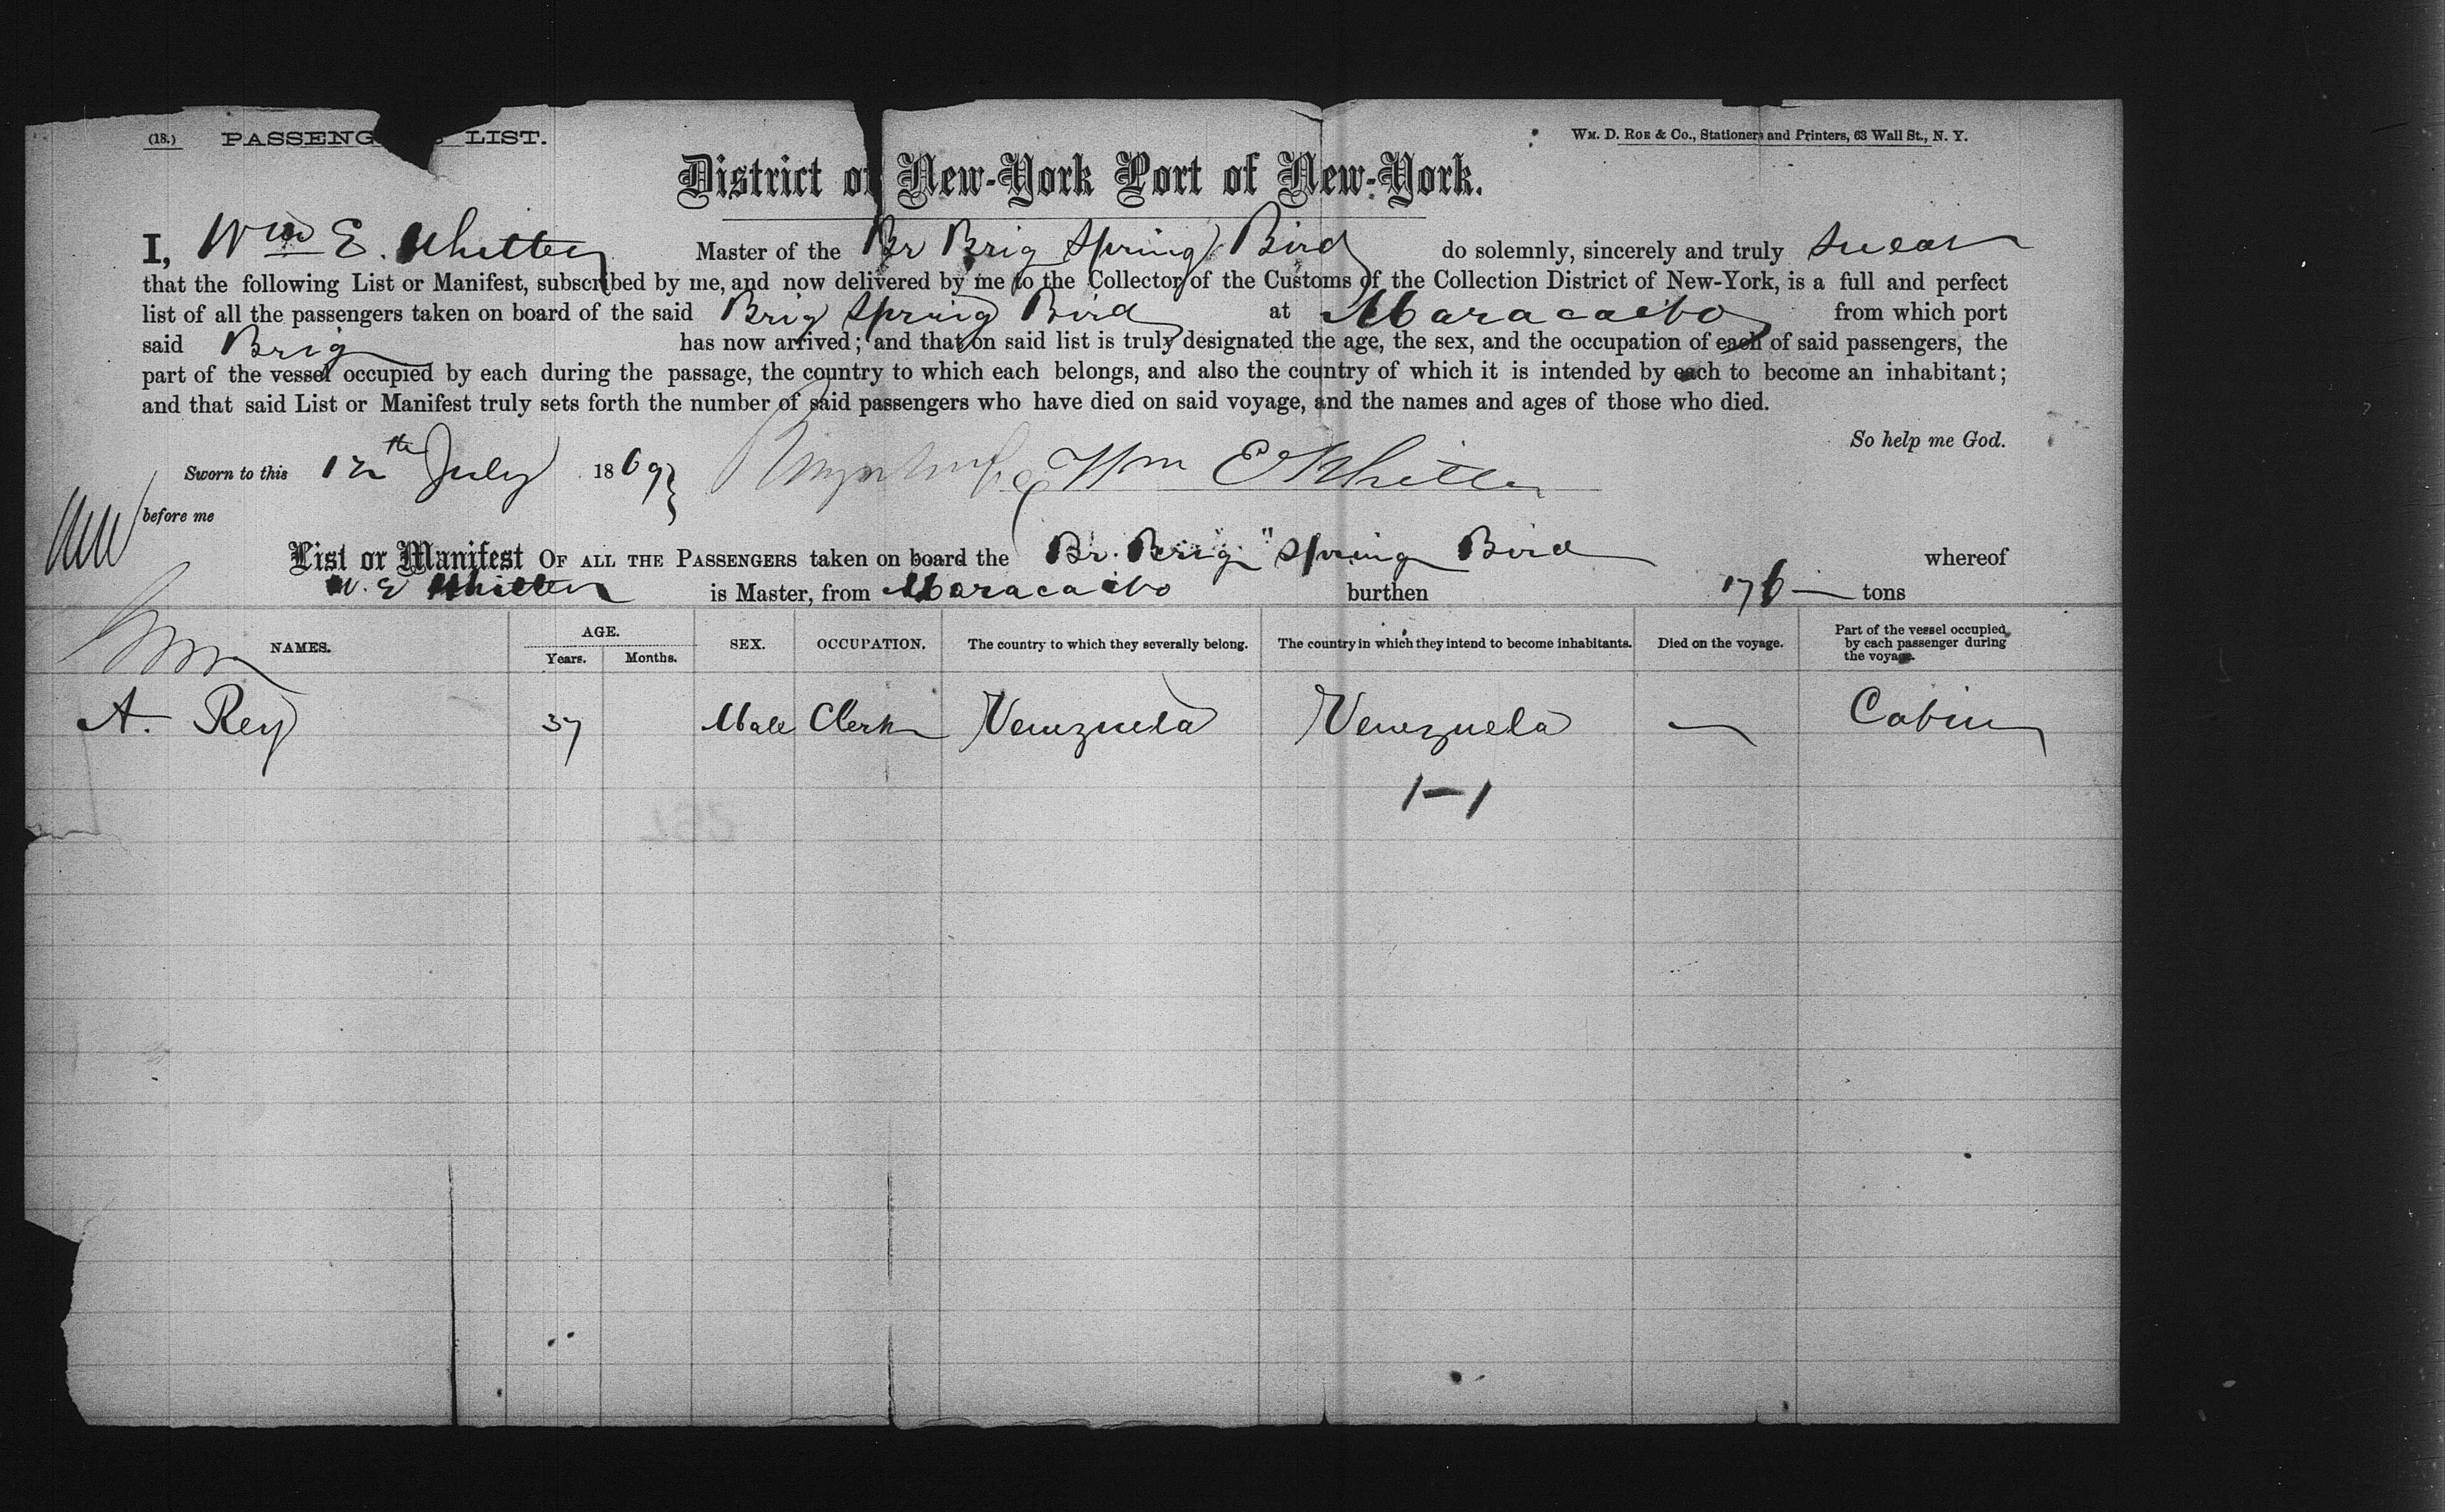 (18.) PASSENG S LIST.
Wm. D. Roe & Co., Stationers and Printers, 63 Wall St., N. Y.
District of New-York Port of New-York.
I, Wm E. Whitten Master of the Br Brig Spring Bird do solemnly, sincerely and truly swear
that the following List or Manifest, subscribed by me, and now delivered by me to the Collector of the Customs of the Collection District of New-York, is a full and perfect
list of all the passengers taken on board of the said Brig Spring Bird at Maracaibo from which port
said Brig has now arrived; and that on said list is truly designated the age, the sex, and the occupation of each of said passengers, the
part of the vessel occupied by each during the passage, the country to which each belongs, and also the country of which it is intended by each to become an inhabitant;
and that said List or Manifest truly sets forth the number of said passengers who have died on said voyage, and the names and ages of those who died.
So help me God.
Sworn to this 12th July 1869 Wm E Whitten
before me
List or Manifest OF ALL THE PASSENGERS taken on board the Br. Brig "Spring Bird whereof
W. E Whitten is Master, from Maracaibo burthen 176 — tons
NAMES. AGE. Years. Months. SEX. OCCUPATION. The country to which they severally belong. The country in which they intend to become inhabitants. Died on the voyage. Part of the vessel occupied by each passenger during the voyage.
A. Rey 37 Male Clerk Venezuela Venezuela — Cabin
1-1